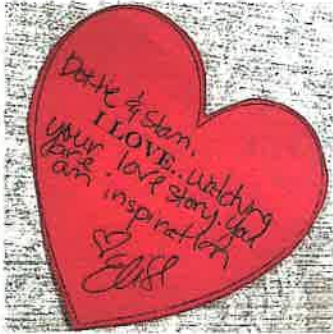 Dottie & Stan,
I LOVE... watching
your love story. you
are an inspiration
♡
Elise